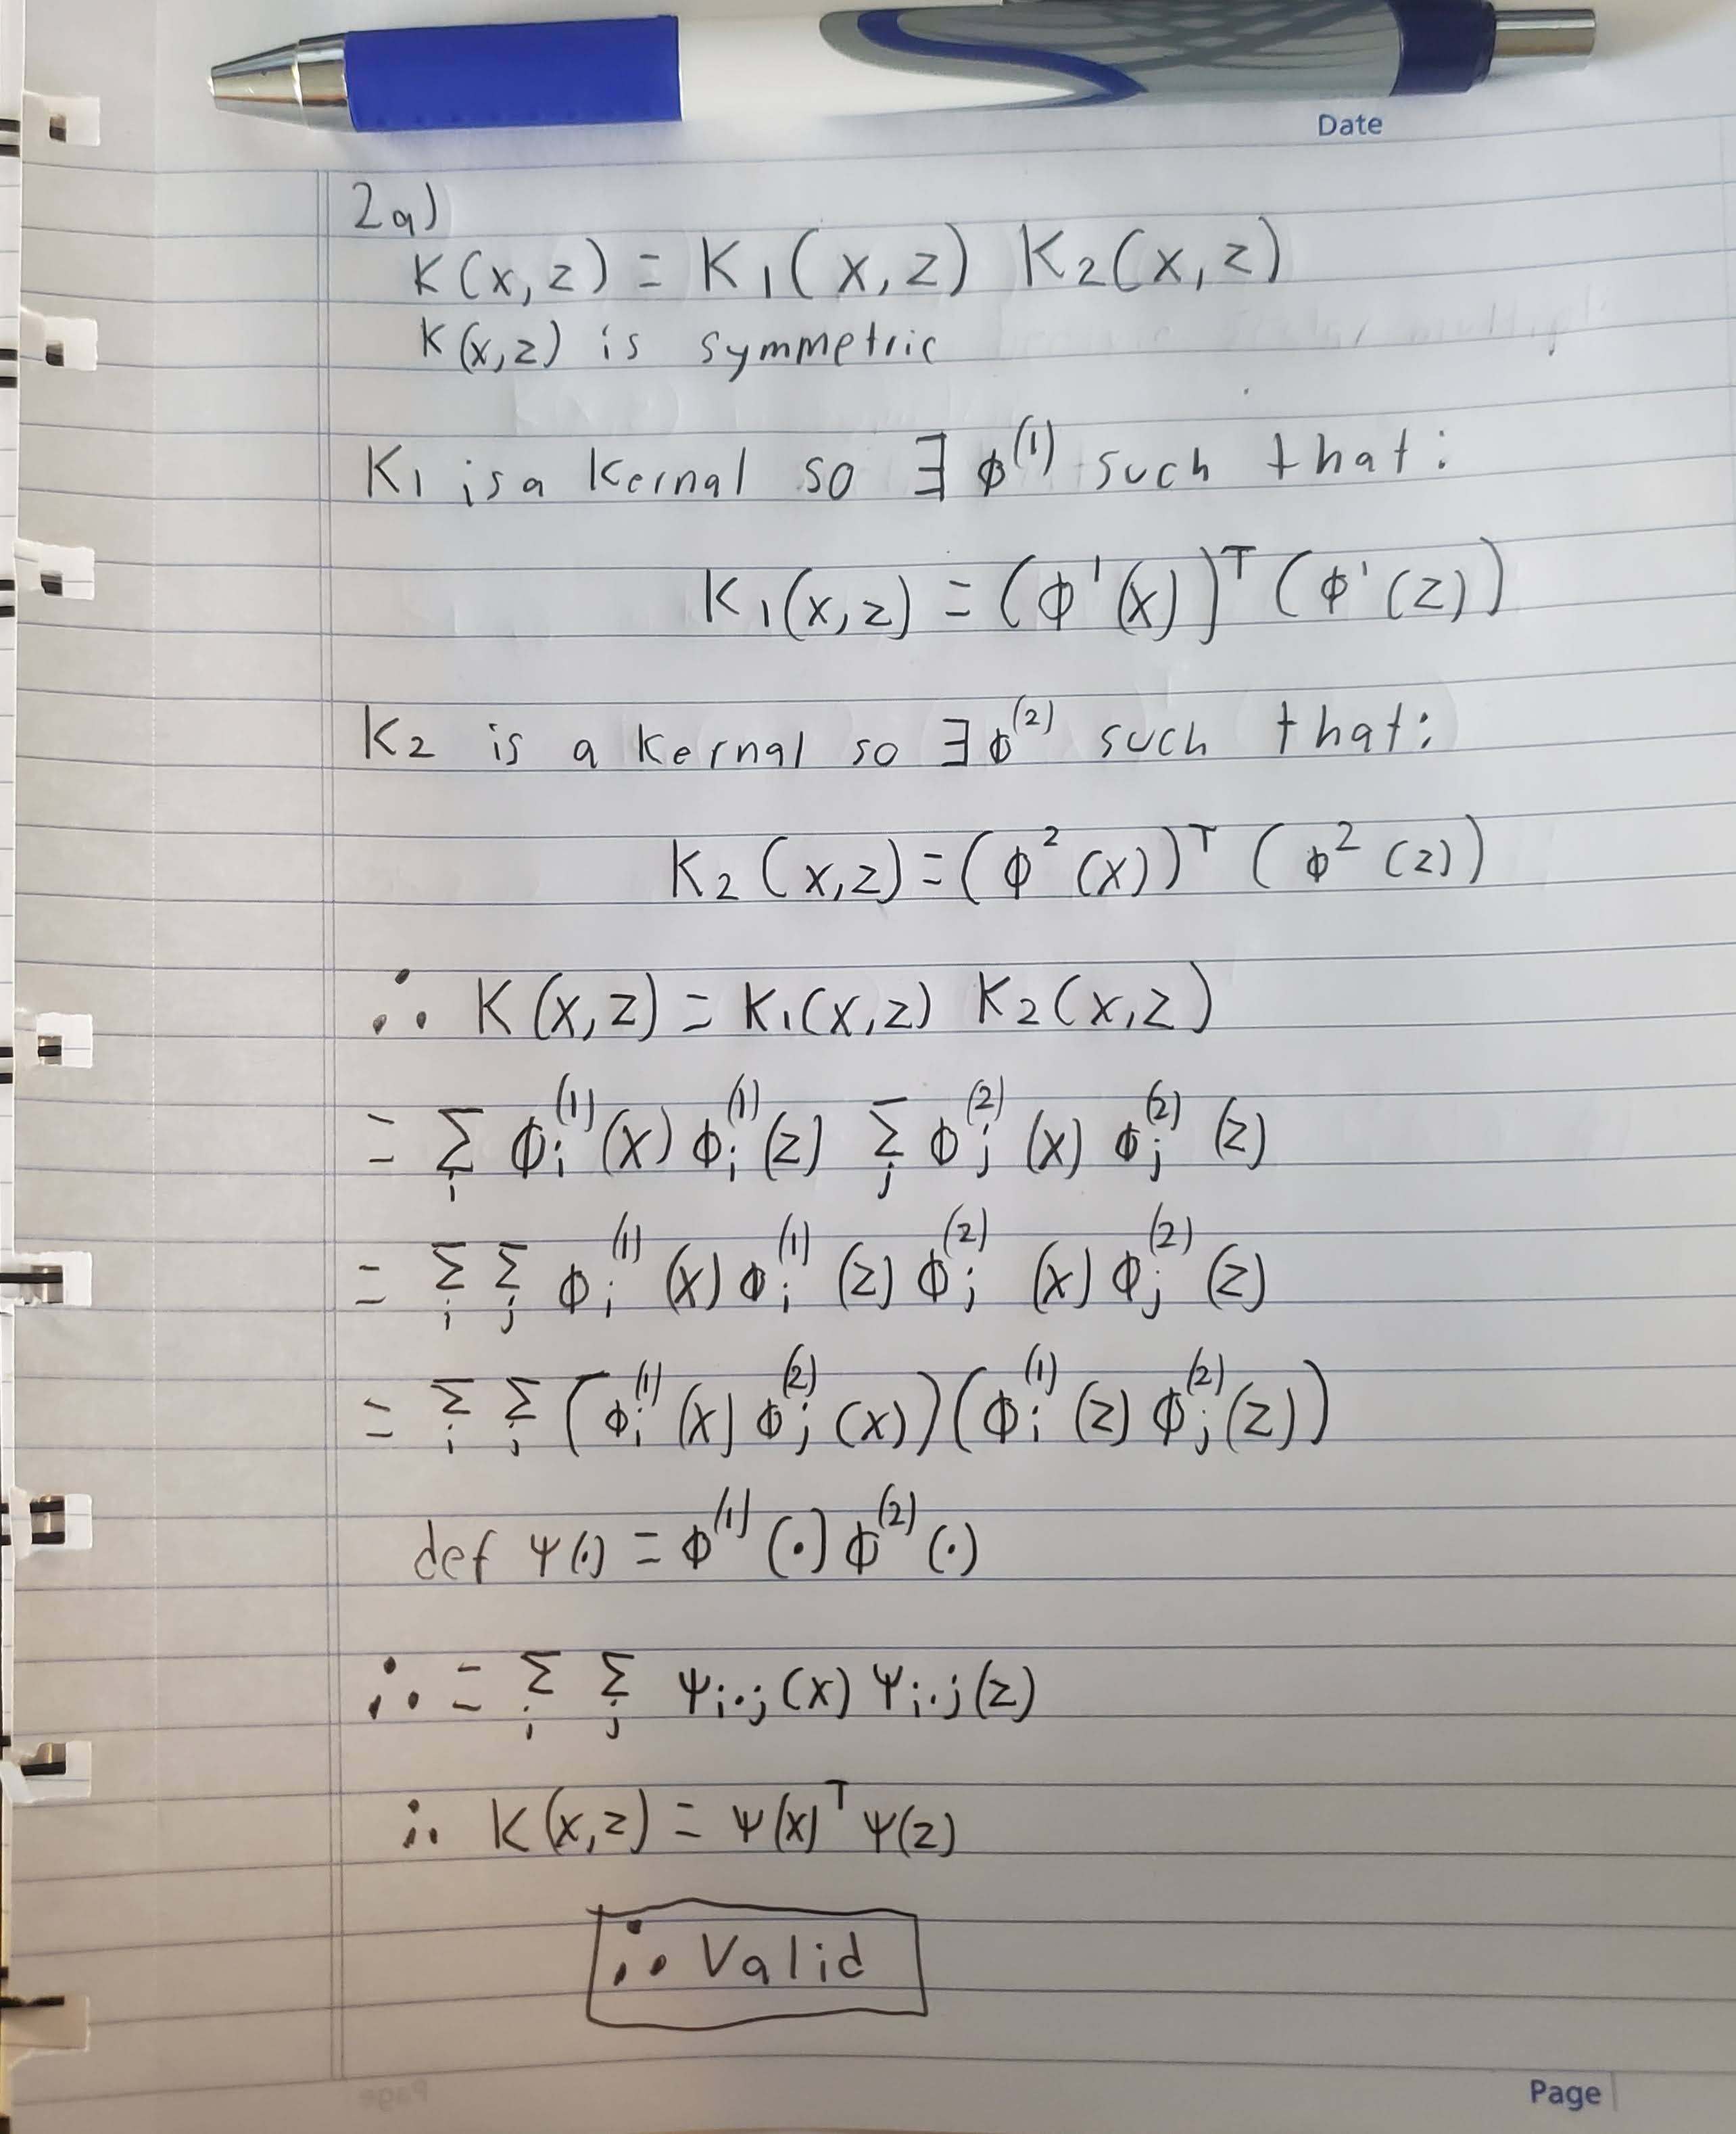 Date
2a)
K(x,z) = K₁(x,z) K₂(x,z)
K(x,z) is symmetric
K₁ is a Kernal so ∃ ϕ⁽¹⁾ such that:
K₁(x,z) = (ϕ¹(x))ᵀ(ϕ¹(z))
K₂ is a Kernal so ∃ ϕ⁽²⁾ such that:
K₂(x,z) = (ϕ²(x))ᵀ (ϕ²(z))
∴ K(x,z) = K₁(x,z) K₂(x,z)
= Σᵢ ϕᵢ⁽¹⁾(x) ϕᵢ⁽¹⁾(z) Σⱼ ϕⱼ⁽²⁾(x) ϕⱼ⁽²⁾(z)
= Σᵢ Σⱼ ϕᵢ⁽¹⁾(x) ϕᵢ⁽¹⁾(z) ϕⱼ⁽²⁾(x) ϕⱼ⁽²⁾(z)
= Σᵢ Σⱼ (ϕᵢ⁽¹⁾(x) ϕⱼ⁽²⁾(x))(ϕᵢ⁽¹⁾(z) ϕⱼ⁽²⁾(z))
def Ψ(·) = ϕ⁽¹⁾(·) ϕ⁽²⁾(·)
∴ = Σᵢ Σⱼ Ψᵢ.ⱼ(x) Ψᵢ.ⱼ(z)
∴ K(x,z) = Ψ(x)ᵀ Ψ(z)
∴ Valid
Page